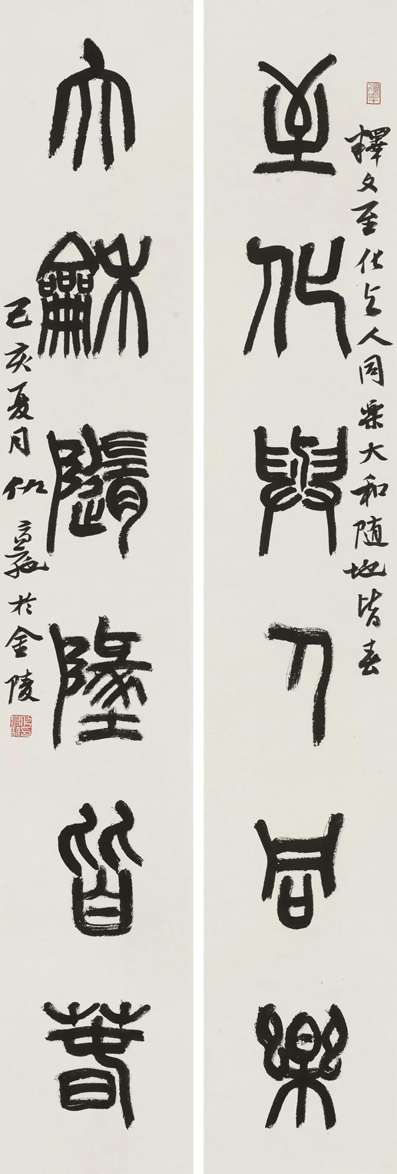 釋文至化与人同樂大和随地皆春
至化與人同樂
大龢隨墬皆春
己亥夏月於金陵